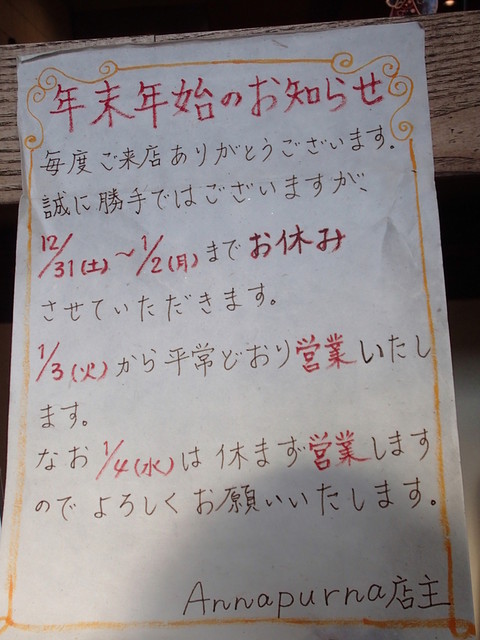 年末年始のお知らせ
毎度ご来店ありがとうございます。
誠に勝手ではございますが、
12/31(土)〜1/2(月)までお休み
させていただきます。
1/3(火)から平常どおり営業いたし
ます。
なお1/4(水)は休まず営業します
のでよろしくお願いいたします。
Annapurna店主